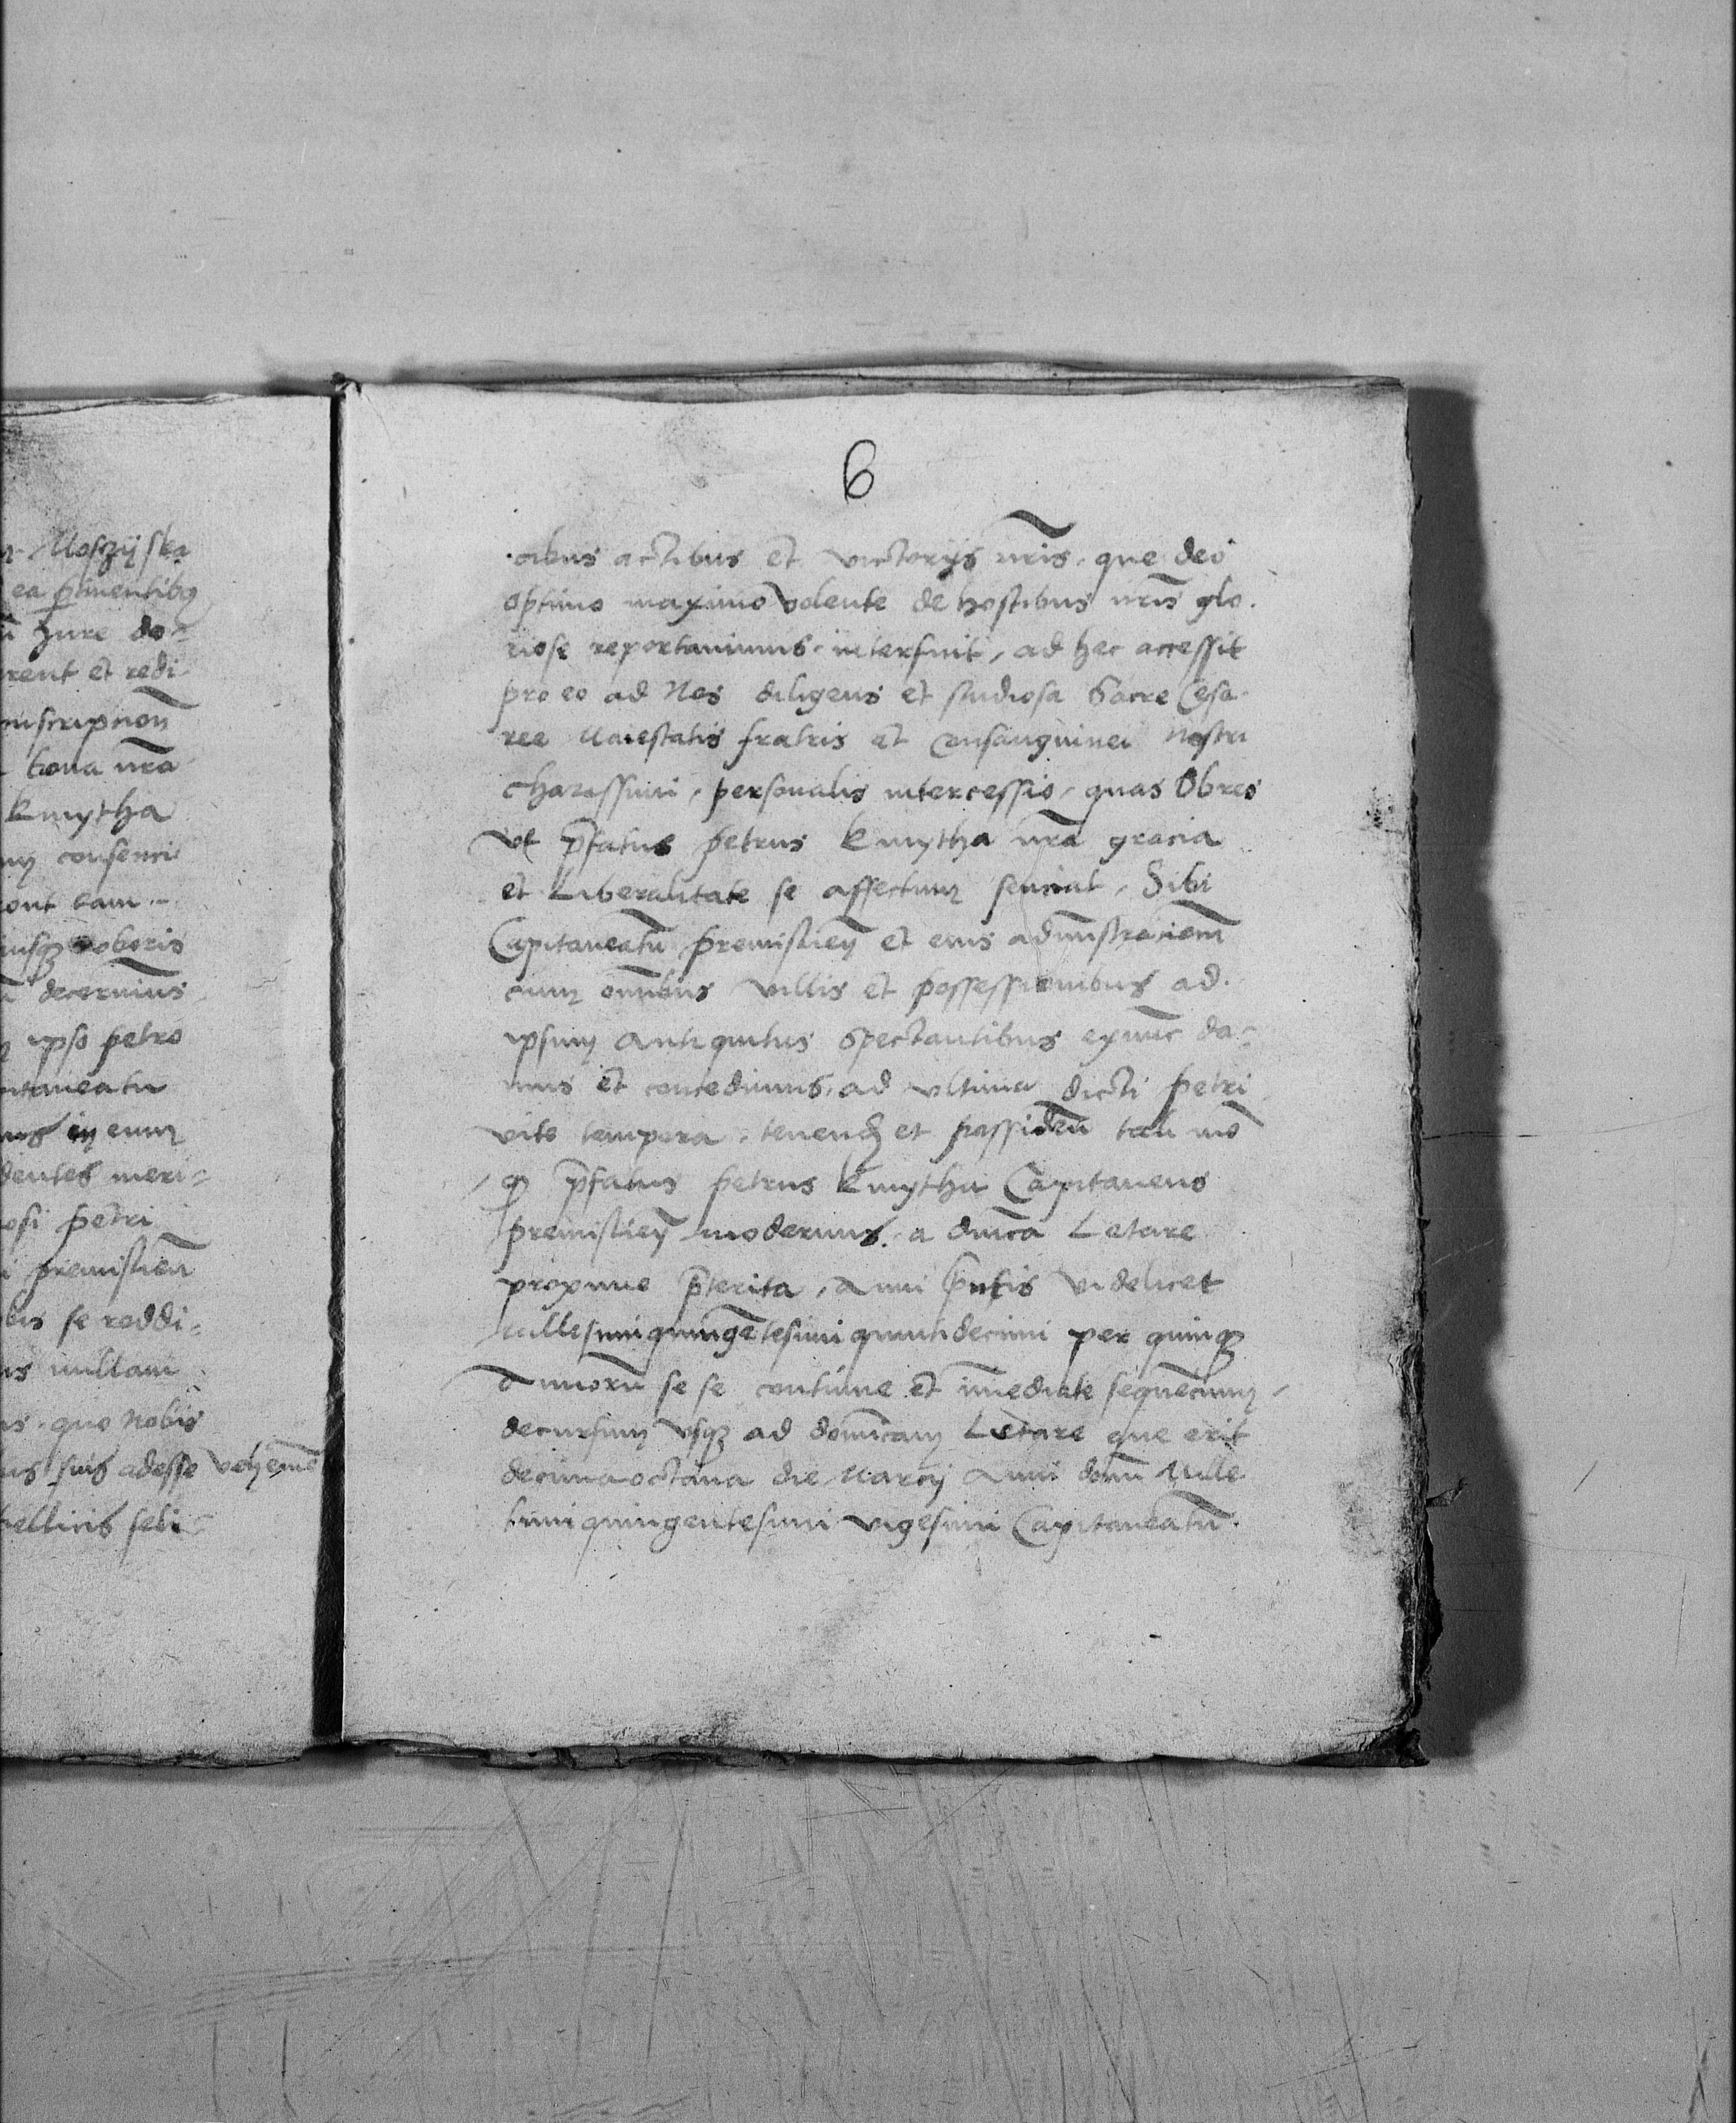 Moszÿska
ea ꝑtinentibꝰ
Jure do-
rent et redi
inscription̄
bona nr̄a
kmytha
consensi
tam
roboris
decernimus
ipso petro
eum
dentes meri=
petri
premislien̄
bis se reddi=
nullam
quo nobis
suis adesse vehemē
bellicis feli=
6
cibus actibus et victorijs nr̄is. que deo
optimo maximo volente de hostibus nr̄is glo.
riose reportauimus. interfuit, ad hec accessit
pro eo ad Nos diligens et studiosa Sacre Cesa
ree Maiestatis fratris et Consanguinei nostri
charissimi, personalis intercessio, quas Obres
vt p̄fatus petrus kmytha nr̄a gracia
et Liberalitate se affectum senciat, Sibi
Capitaneatū premislień et eius admīstracionē
cum om̄ibus villis et possessionibus ad.
ipsum Antiquitus Spectantibus exnunc da=
mus et concedimus, ad vltima dicti petri
vite tempora, tenenꝺ et possidēn tali mō
ꝙ p̄fatus petrus kmytha Capitaneus
premislień modernus. a dn̄ica Letare
proxime p̄terita, Anni p̄ntis videlicet
Millesimiquingētesimiquintidecimi per quinqꝫ
Annorū se se continue et īmediate sequēcium,
decursum vsqꝫ ad domīcam Letare que erit
decimaoctaua die Marcij Anni domī Mille
simiquingentesimi vigesimi Capitaneatū.